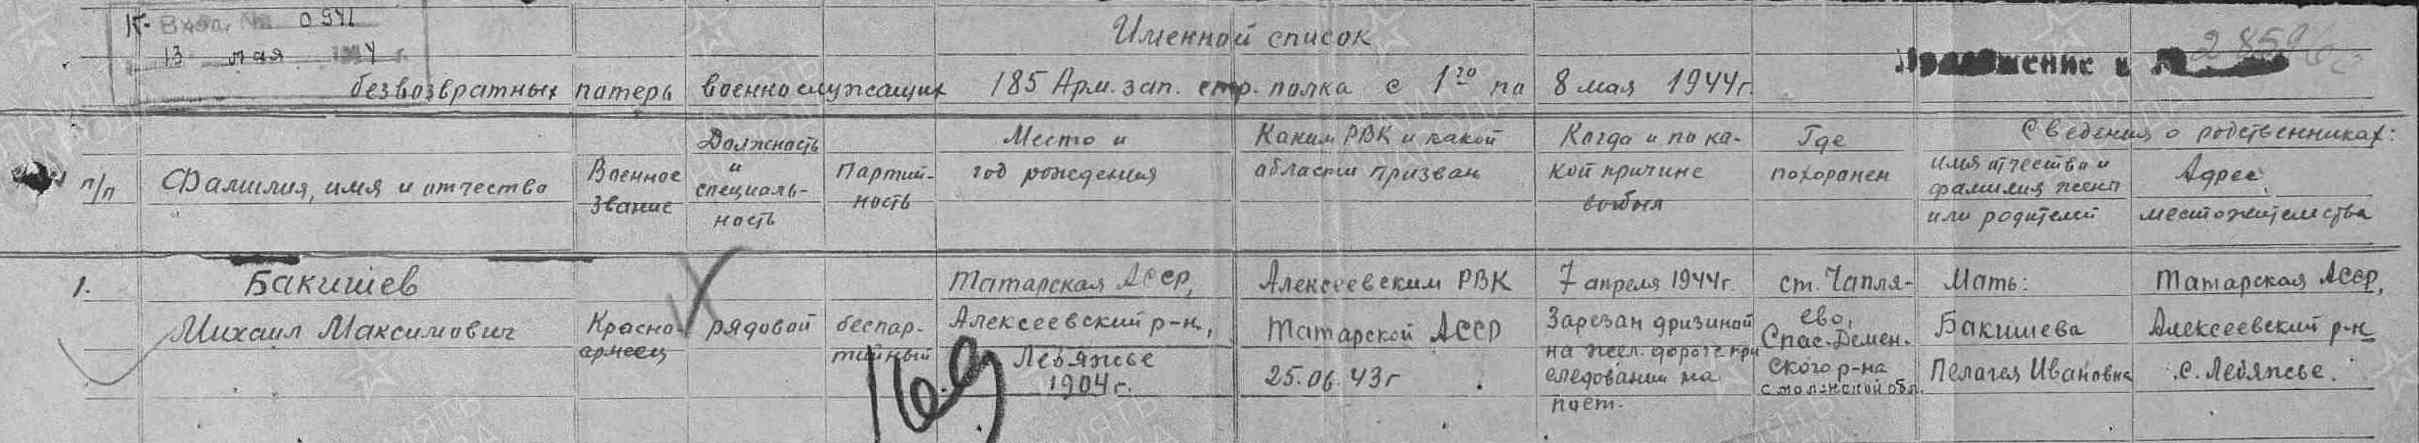 Вход. № 0541
13 мая 1944 г.
Именной список
безвозвратных потерь военнослужащих 185 Арм. зап. стр. полка с 1го по 8 мая 1944г.
п/п
Фамилия, имя и отчество
Военное
звание
Должность
и
специаль-
ность
Партий-
ность
Место и
год рождения
Каким РВК и какой
области призван
Когда и по ка-
кой причине
выбыл
Где
похоронен
Сведения о родственниках:
имя отчество и
фамилия жены
или родителей
Адрес
местожительства
1.
Бакишев
Михаил Максимович
Красно-
армеец
рядовой
беспар-
тийный
Татарская АССР,
Алексеевский р-н,
Лебяжье
1904г.
Алексеевским РВК
Татарской АССР
25.06.43г
7 апреля 1944г.
Зарезан дризиной
на жел. дороге при
следовании на
пост.
ст. Чапля-
ево,
Спас-Демен-
ского р-на
Смоленской обл.
Мать:
Бакишева
Пелагея Ивановна
Татарская АССР,
Алексеевский р-н
с. Лебяжье.